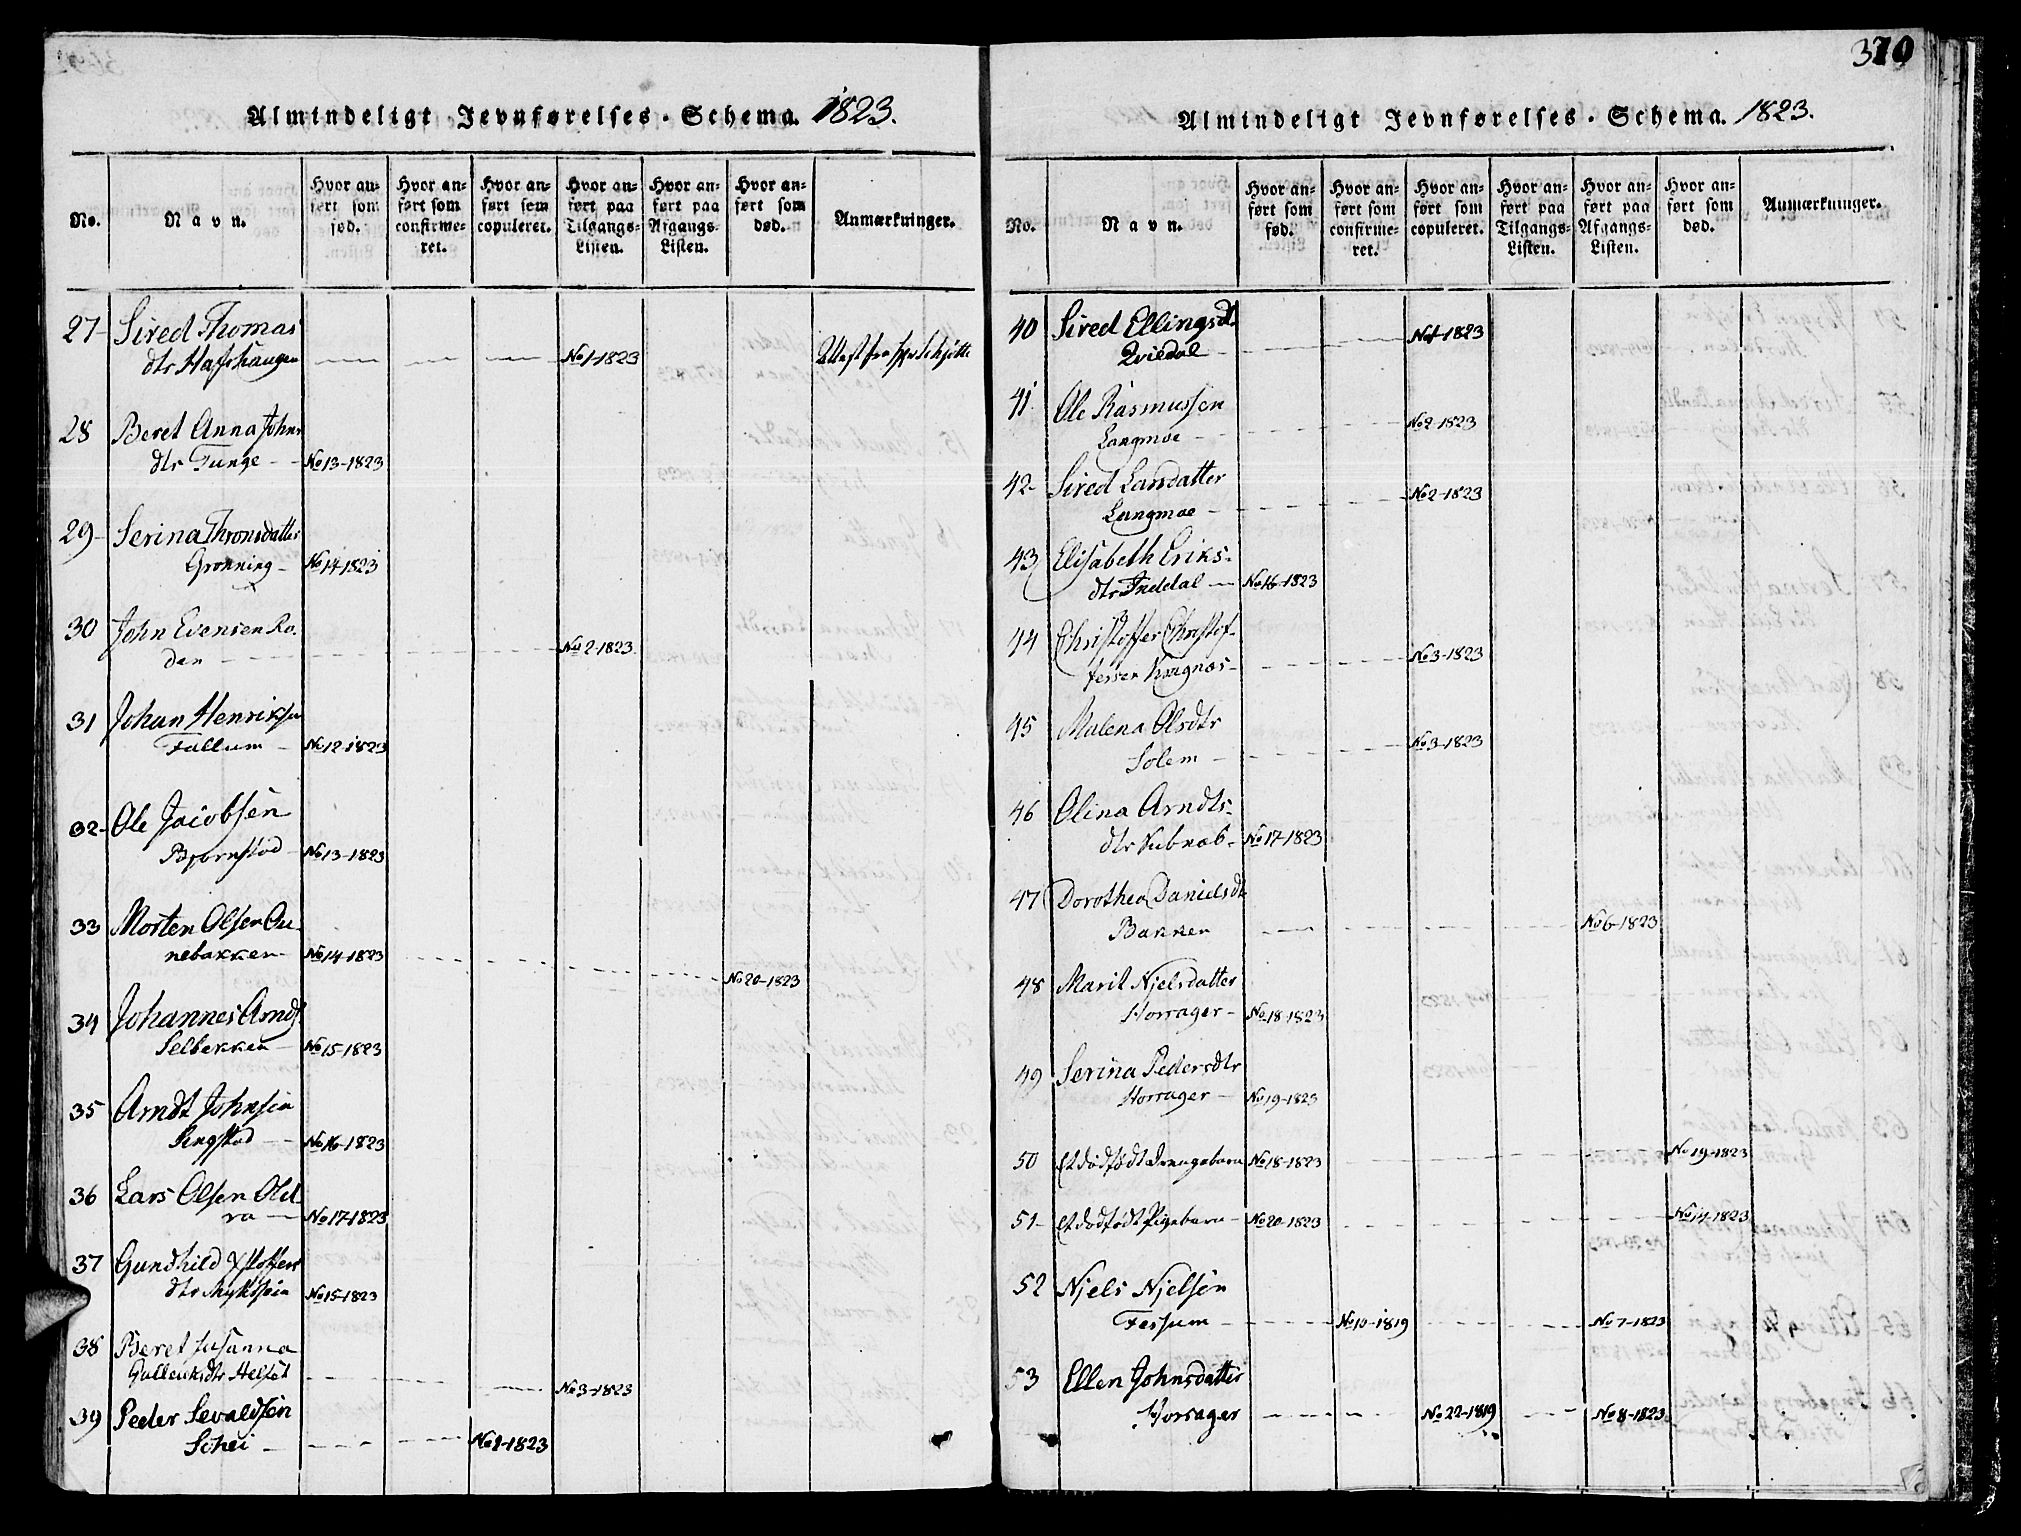 Almindeligt Jevnførelses-Schema. 1823.
No. Navn. Hvor anført som fød. Hvor anført som confirmeret. Hvor anført som copuleret. Hvor anført paa Tilgangs-Listen. Hvor anført paa Afgangs-Listen. Hvor anført som død. Anmærkninger.
27- Sired Thomas
dtr No 1-1823
28 Beret Anna Johns
dtr Tunge - No 13-1823
29- Serina Thronsdatter
Grønning - No 14-1823
30 John Evensen Ro-
den No 2-1823
31 Johan Henriksen
Fallum - No 12-1823
32- Ole Jacobsen
Bjørnstad - No 13-1823
33 Morten Olsen
nebakken - No 14-1823 No 20-1823
34 Johannes Arndts
Selbekken - No 15-1823
35 Arndt Johnsen
Ringstad - No 16-1823
36 Lars Olsen Old
ra - No 17-1823
37 Gundhild
dtr No 15-1823
38 Beret Susanna
No 3-1823
39 Peder Sevaldsen
Schei - No 1-1823
370
Almindeligt Jevnførelses-Schema. 1823.
No. Navn. Hvor anført som fød. Hvor anført som confirmeret. Hvor anført som copuleret. Hvor anført paa Tilgangs-Listen. Hvor anført paa Afgangs-Listen. Hvor anført som død. Anmærkninger.
40 Sired Ellingsdt.
No 1-1823
41 Ole Rasmussen
Langmoe - No 2-1823
42- Sired Larsdatter
Langmoe - No 2-1823
43 Elisabeth Eriks-
dtr Inddal - No 16-1823
44 Christoffer Christof-
fersen Kragnæs - No 3-1823
45 Malena Olsdtr
Solem - No 3-1823
46 Olina Arndts-
dtr - No 17-1823
47 Dorothea Danielsdt
Bakken No 6-1823
48 Marit Njelsdatter
Horrager - No 18-1823
49 Serina Pedersdtr
Horrager - No 19-1823
50 et dødfødt Drengebarn No 18-1823 No 19-1823
51- et dødfødt Pigebarn - No 20-1823 No 14-1823
52 Njels Njelsen
Fessum - No 10-1819 No 7-1823
53 Ellen Johnsdatter
Horrager No 22-1819 No 8-1823